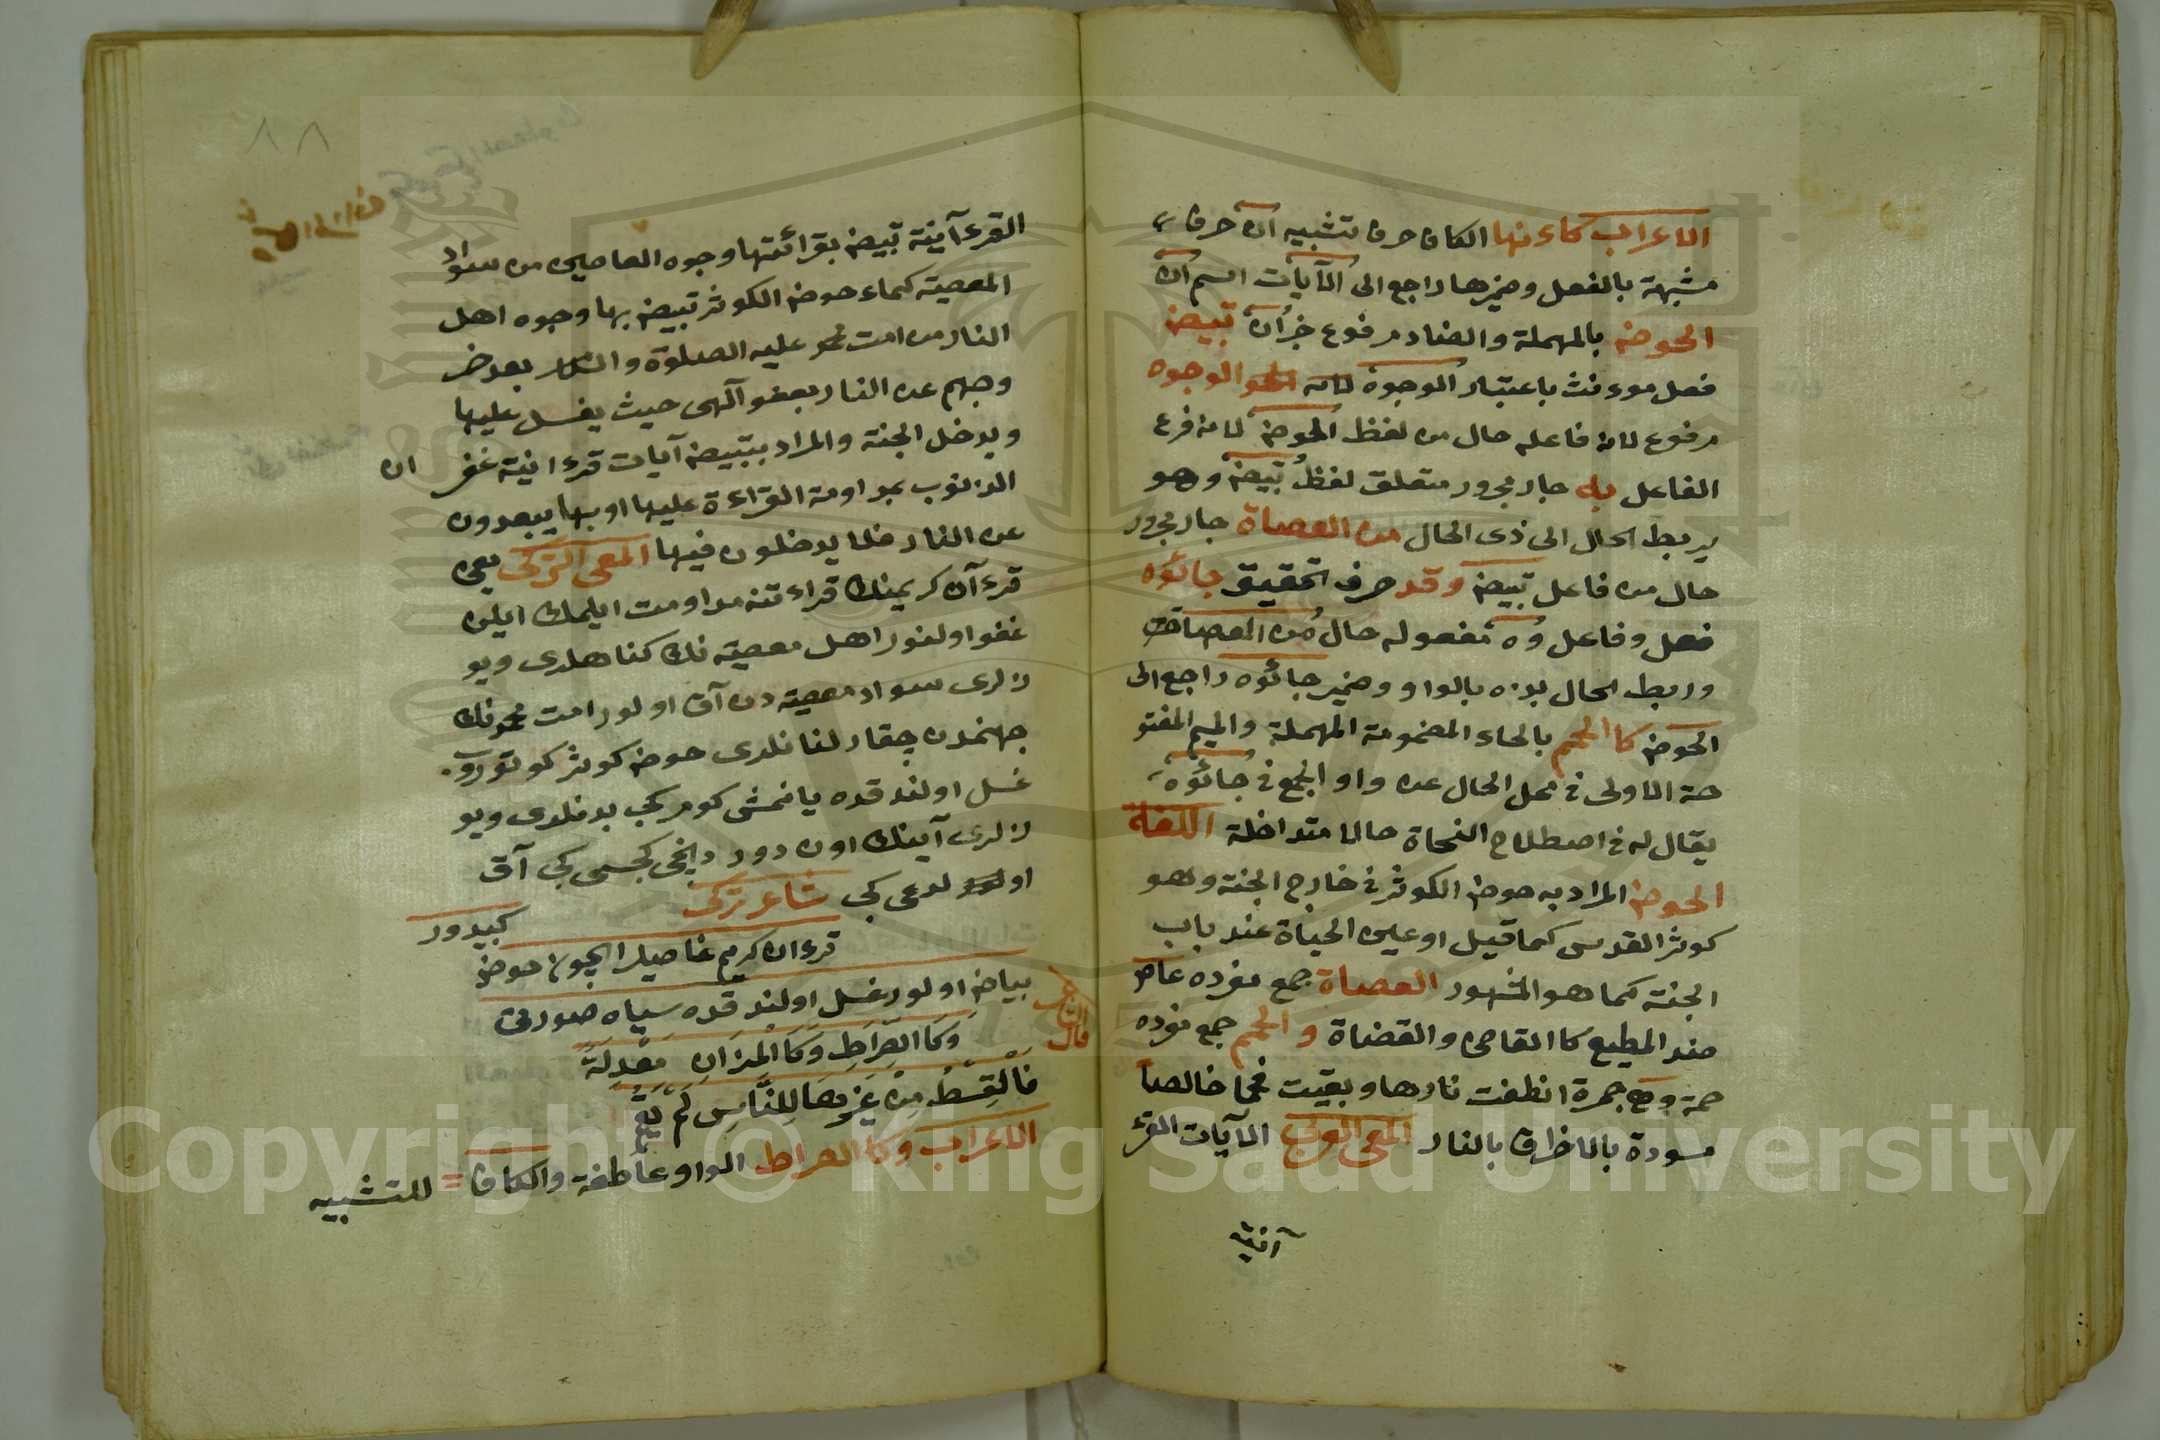 الاعراب كاءنها الكاف حرف تشبيه ان حرف
مشبهة بالفعل وضميرها راجع الى الآيات اسم ان
الحوض بالمهملة والضاد مرفوع خبر ان تبيض
فعل موءنث باعتبار الوجوه لانه الوجوه
مرفوع لانه فاعله حال من لفظ الحوض لانه فرع
الفاعل به جار مجرور متعلق لفظ تبيض وهو
يربط الحال الى ذى الحال من العصاة جار مجرور
حال من فاعل تبيض وقد حرف تحقيق جائوه
فعل وفاعل وه مفعوله حال من العصات
وربط الحال بذه بالواو وضمير جائوه راجع الى
الحوض كا الحمم بالحاء المضمومة المهملة والميم المفتو
حة الاولى فى محل الحال عن واو الجمع فى جائوه
يقال له فى اصطلاح النحاة حالا متداخلة اللغة
الحوض المراد به حوض الكوثر فى خارج الجنة وهو
كوثر القدس كما قيل او عين الحياة عند باب
الجنة كما هو المشهور العصاة جمع مفرده عاص
ضد المطيع كا القاضى والقضاة و الحمم جمع مفرده
حمة وهى جمرة انطفت نارها وبقيت فحما خالصا
مسودة بالاخراق بالنار المعنى العربى الآيات القرء
آنية
٨٨
القرءآينة تبيض بقرائتها وجوه العاصين من سواد
المعصية كماء حوض الكوثر تبيض بها وجوه اهل
النار من امت محمد عليه الصلوة والسلام بعد خر
وجهم عن النار بعفو آلهى حيث يغسل عليها
ويدخل الجنة والمراد بتبيض آيات قرءانية غفر ان
الذنوب بمداومة القراءة عليها او بها يبعدون
عن النار فلا يدخلون فيها المعنى التركى يعنى
قرءآن كريمنك قراءتنه مداومت ايلمك ايلن
عفو اولنور اهل معصيته نك كناهلرى ويو
زلرى سواد معصيته دن آق اولور امت محمدنك
جهنمدن چقارلنانلرى حوض كوثر كوتورو
غسل اولندقده يانمش كومر كبى بدنلرى ويو
زلرى آينك اون دورديخى كجسى كبى آق
اولدغى كبى شاعر تركى كبيدور
قرءان كريم عاصيلر ايچون حوض
بياض اولور غسل اولندقده سياه صورتى
قال الناظم
وَكَا الصِّرَاطِ وَكَا الْمِيزَانِ مَعْدِلَةً
فَالْقِسْطُ مِنْ غَيْرِهَا لِلنَّاسِ لَمْ يَقُمِ
الاعراب وكا الصراط الواو عاطفة والكاف للتشبيه